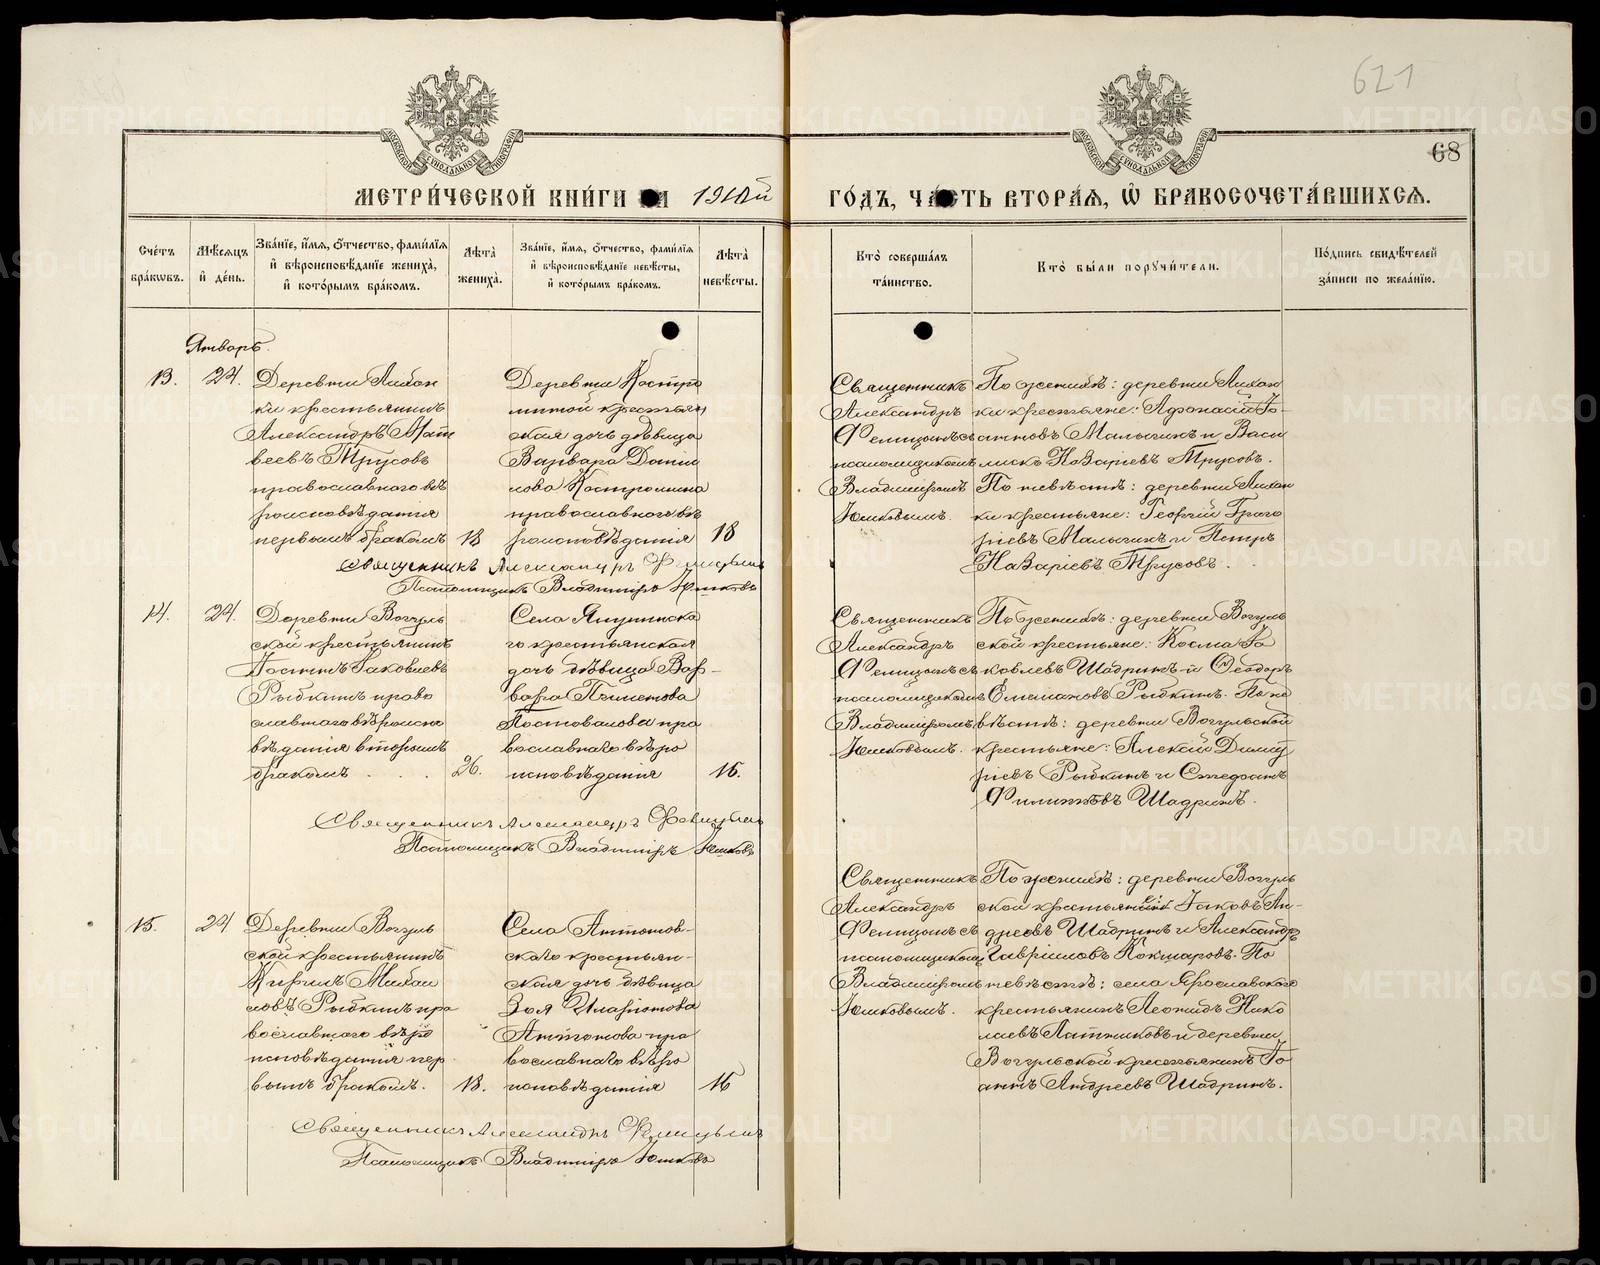 621
68
МОСКОВСКОЙ СѴНОДАЛЬНОЙ ТИПОГРАФІИ
МОСКОВСКОЙ СѴНОДАЛЬНОЙ ТИПОГРАФІИ
МЕТРИ́ЧЕСКОЙ КНИ́ГИ НА
ГО́ДЪ, ЧА́СТЬ ВТОРА́Я, Ѡ БРАКОСОЧЕТА́ВШИХСЯ.
Сче́тъ бра́кѡвъ.
Мѣ́сяцъ и҆ де́нь.
Зва́нїе, и҆́мя, ѻ҆́тчество, фами́лїя и҆ вѣроисповѣ́данїе жениха̀, и҆ кото́рымъ бра́комъ.
Лѣ́та жениха̀.
Зва́нїе, и҆́мя, ѻ҆́тчество, фами́лїя и҆ вѣроисповѣ́данїе невѣ́сты, и҆ кото́рымъ бра́комъ.
Лѣ́та невѣ́сты.
Кто̀ соверша́лъ та́инство.
Кто̀ бы́ли порꙋчи́тели.
По́дпись свидѣ́телей за́писи по жела́нїю.
Январь.
13.
24.
Деревни Лихан
ки крестьянинъ
Александръ Мат
веевъ Трусовъ
православнаго вѣ
роисповѣданія
первымъ бракомъ
18
Деревни Костро
миной крестьян
ская дочь дѣвица
Варвара Данiи
лова Костромина
православнаго вѣ
роисповѣданія
18
Священникъ
Александръ
Фелицынъ съ
псаломщикомъ
Владимiромъ
Юшковымъ.
По женихѣ: деревни Лихан
ки крестьяне: Афонасiй Га-
Малыгинъ и Васи
лискъ Назарiевъ Трусовъ.
По невѣстѣ: деревни Лихан
ки крестьяне: Георгiй Григо
рiевъ Малыгинъ и Петръ
Назарiевъ Трусовъ.
Священникъ Александръ Фелицынъ
Псаломщикъ Владимiръ Юшковъ
14.
24.
Деревни Вогуль
ской крестьянинъ
Iаковлевъ
Рыбкинъ право
славнаго вѣроиспо
вѣданія вторымъ
бракомъ . . .
26.
Села Ялунинска
го крестьянская
дочь дѣвица Вар-
вара
Постовалова пра
вославнаго вѣро
исповѣданія
16.
Священникъ
Александръ
Фелицынъ съ
псаломщикомъ
Владимiромъ
Юшковымъ.
По женихѣ: деревни Вогуль
ской крестьяне: Косма Iа
ковлевъ Шадринъ и Ѳеодоръ
Рыбкинъ. По не
вѣстѣ: деревни Вогульской
крестьяне: Алексiй Димит
рiевъ Рыбкинъ и Стефанъ
Филипповъ Шадринъ.
Священникъ Александръ Фелицынъ
Псаломщикъ Владимiръ Юшковъ
15.
24
Деревни Вогуль
ской крестьянинъ
Кирилъ Михаи
ловъ Рыбкинъ пра
вославнаго вѣро
исповѣданія пер
вымъ бракомъ.
18.
Села Антонов-
скаго крестьян-
ская дочь дѣвица
Зоя Иларiонова
Антонова пра
вославнаго вѣро
исповѣданія
16
Священникъ
Александръ
Фелицынъ съ
псаломщикомъ
Владимiромъ
Юшковымъ.
По женихѣ: деревни Вогуль
ской Iаковъ Ан-
дреевъ Шадринъ и Александръ
Гаврiиловъ Кокшаровъ. По
невѣстѣ: села Ярославскаго
крестьянинъ Леонидъ Нико
лаевъ и деревни
Вогульской крестьянинъ Iо
аннъ Андреевъ Шадринъ.
Священникъ Александръ Фелицынъ
Псаломщикъ Владимiръ Юшковъ
METRIKI.GASO-URAL.RU